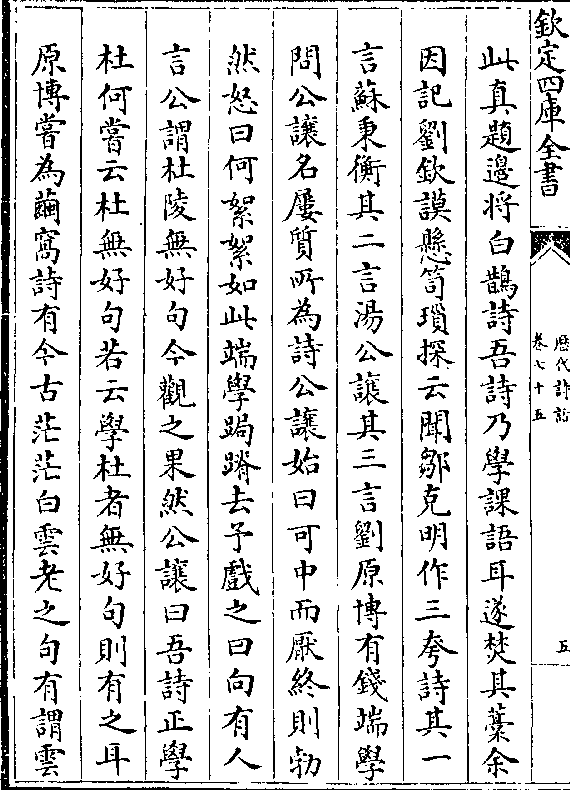 欽定四庫全書
歷代詩話
卷七十五
五
此真題邊将白鵲詩吾詩乃學課語耳遂焚其藁余
因記劉欽謨懸笥瑣探云聞鄒克明作三夸詩其一
言蘇秉衡其二言湯公讓其三言劉原博有錢端學
問公讓名屢質所為詩公讓始曰可中而厭終則勃
然怒曰何絮絮如此端學跼蹐去予戲之曰向有人
言公謂杜陵無好句今觀之果然公讓曰吾詩正學
杜何嘗云杜無好句若云學杜者無好句則有之耳
原博嘗為繭窩詩有今古茫茫白雲老之句有謂雲